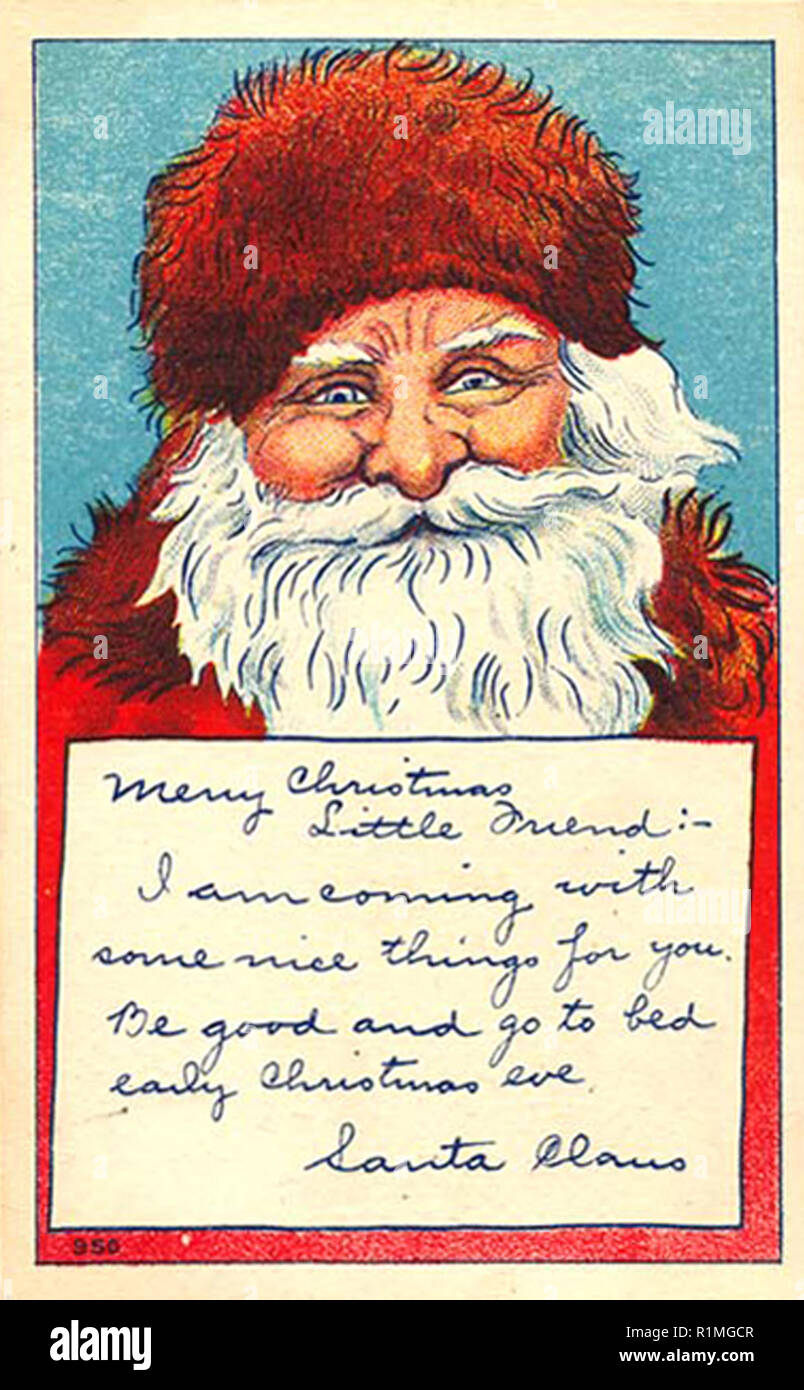 alamy
a
Merry Christmas
Little Friend:-
I am coming with
some nice things for you.
Be good and go to bed
early Christmas eve.
Santa Claus
950
alamy
Image ID: R1MGCR
www.alamy.com